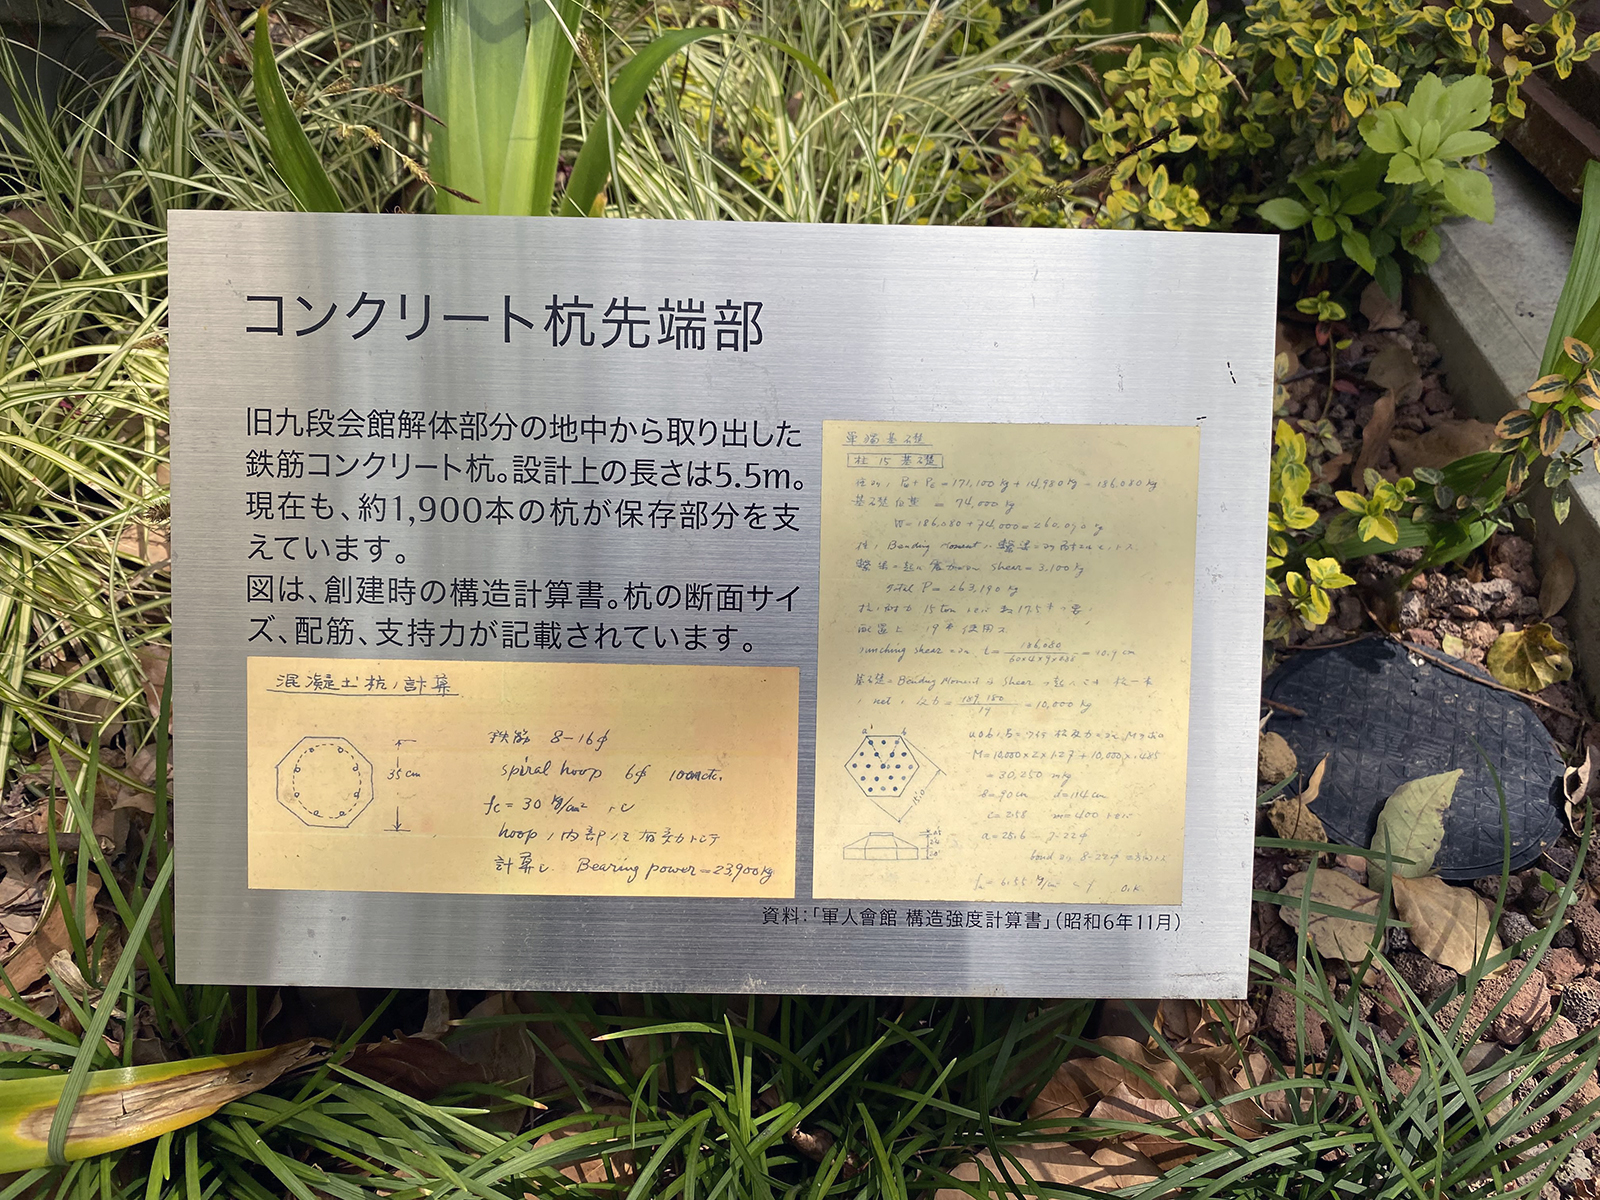 コンクリート杭先端部
旧九段会館解体部分の地中から取り出した
鉄筋コンクリート杭。設計上の長さは5.5m。
現在も、約1,900本の杭が保存部分を支
えています。
図は、創建時の構造計算書。杭の断面サイ
ズ、配筋、支持力が記載されています。
混凝土杭ノ計算
35cm
鉄筋 8-16φ
spiral hoop 6φ
fc = 30 kg/cm²
hoop ノ内部
計算シ Bearing power = 23,900kg
基礎
柱 15 基礎
P + P = 171,100 kg + 14,980 kg = 186,080 kg
基礎自重 = 74,000 kg
W = 186,080 + 74,000 = 260,090 kg
Bending Moment
Shear = 3,100 kg
Total P = 263,190 kg
15 ton 17.5
配置上 19 使用ス
punching shear t = 186,080
基礎 Bending Moment Shear
net = 10,000 kg
a b
M = 10,000×2×1.27 + 10,000×.485
= 30,250
15.0
a = 28.6 7-22φ
bond 8-22φ
O.K.
資料：「軍人會館 構造強度計算書」（昭和6年11月）